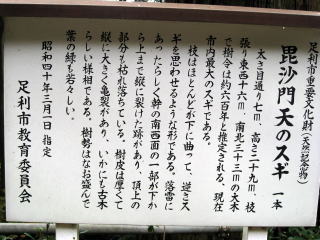 足利市重要文化財(天然記念物)
毘沙門天のスギ 一本
太さ目通り七m、高さ二十九m、枝
張り東西十六m、南北三十三mの大木
で樹令は約六百年と推定される。現在
市内最大のスギである。
枝はほとんどが下に曲って、逆さス
ギを思わせるような形である。落雷に
あったらしく幹の南西面の一部が下か
ら上まで縦に裂けた跡があり、頂上の
部分も枯れ落ちている。樹皮は厚くて
縦に大きく亀裂があり、いかにも古木
らしい様相である。樹勢はなお盛んで
葉の緑も若々しい。
昭和四十年三月一日 指定
足利市教育委員会